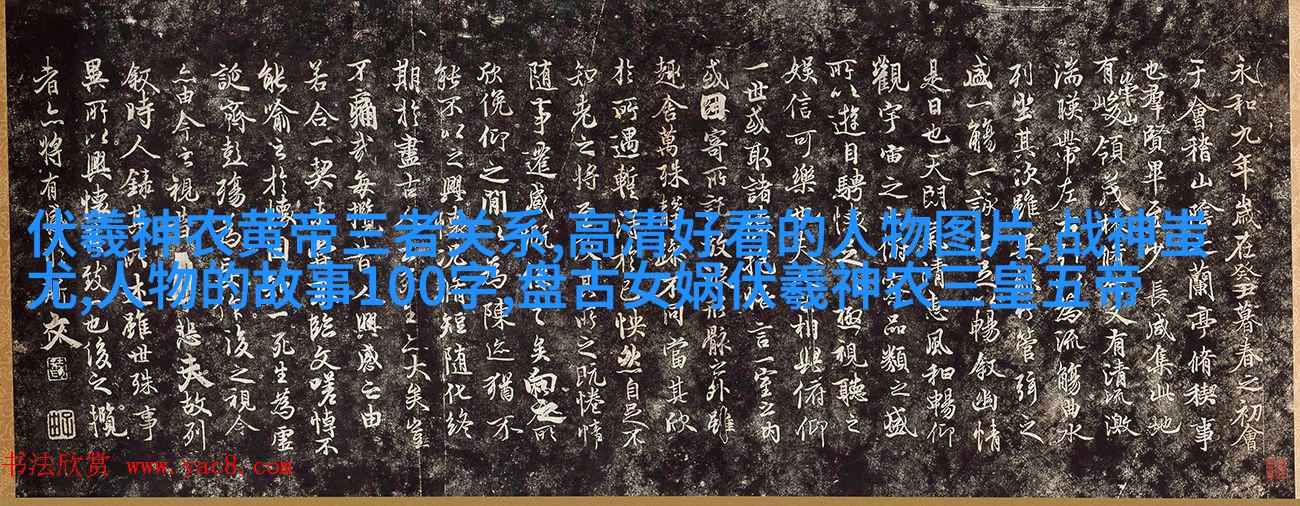 伏羲神农黄帝三者关系,高清好看的人物图片,战神蚩
尤,人物的故事100字,盘古女娲伏羲神农三皇五帝
永和九年歲在癸丑暮春之初會
于會稽山陰之蘭亭脩稧事
也羣賢畢至少長咸集此地
有崇山峻領茂林脩竹又有清流激
湍暎帶左右引以為流觴曲水
列坐其次雖無絲竹管弦之
盛一觴一詠亦足以暢敘幽情
是日也天朗氣清惠風和暢仰
觀宇宙之大俯察品類之盛
所以遊目騁懷足以極視聽之
娛信可樂也夫人之相與俯仰
一世或取諸懷抱悟言一室之內
或因寄所託放浪形骸之外雖
趣舍萬殊靜躁不同當其欣
於所遇蹔得於己怏然自足不
知老之將至及其所之既惓情
隨事遷感慨係之矣向之所
欣俛仰之間以為陳迹猶不
能不以之興懷況脩短隨化終
期於盡古人云死生亦大矣豈
不痛哉每攬昔人興感之由
若合一契未嘗不臨文嗟悼不
能喻之於懷固知一死生為虛
誕齊彭殤為妄作後之視今
亦由今之視昔悲夫故列
敘時人錄其所述雖世殊事
異所以興懷其致一也後之攬
者亦將有感於斯文
书法欣赏 www.yac8.com